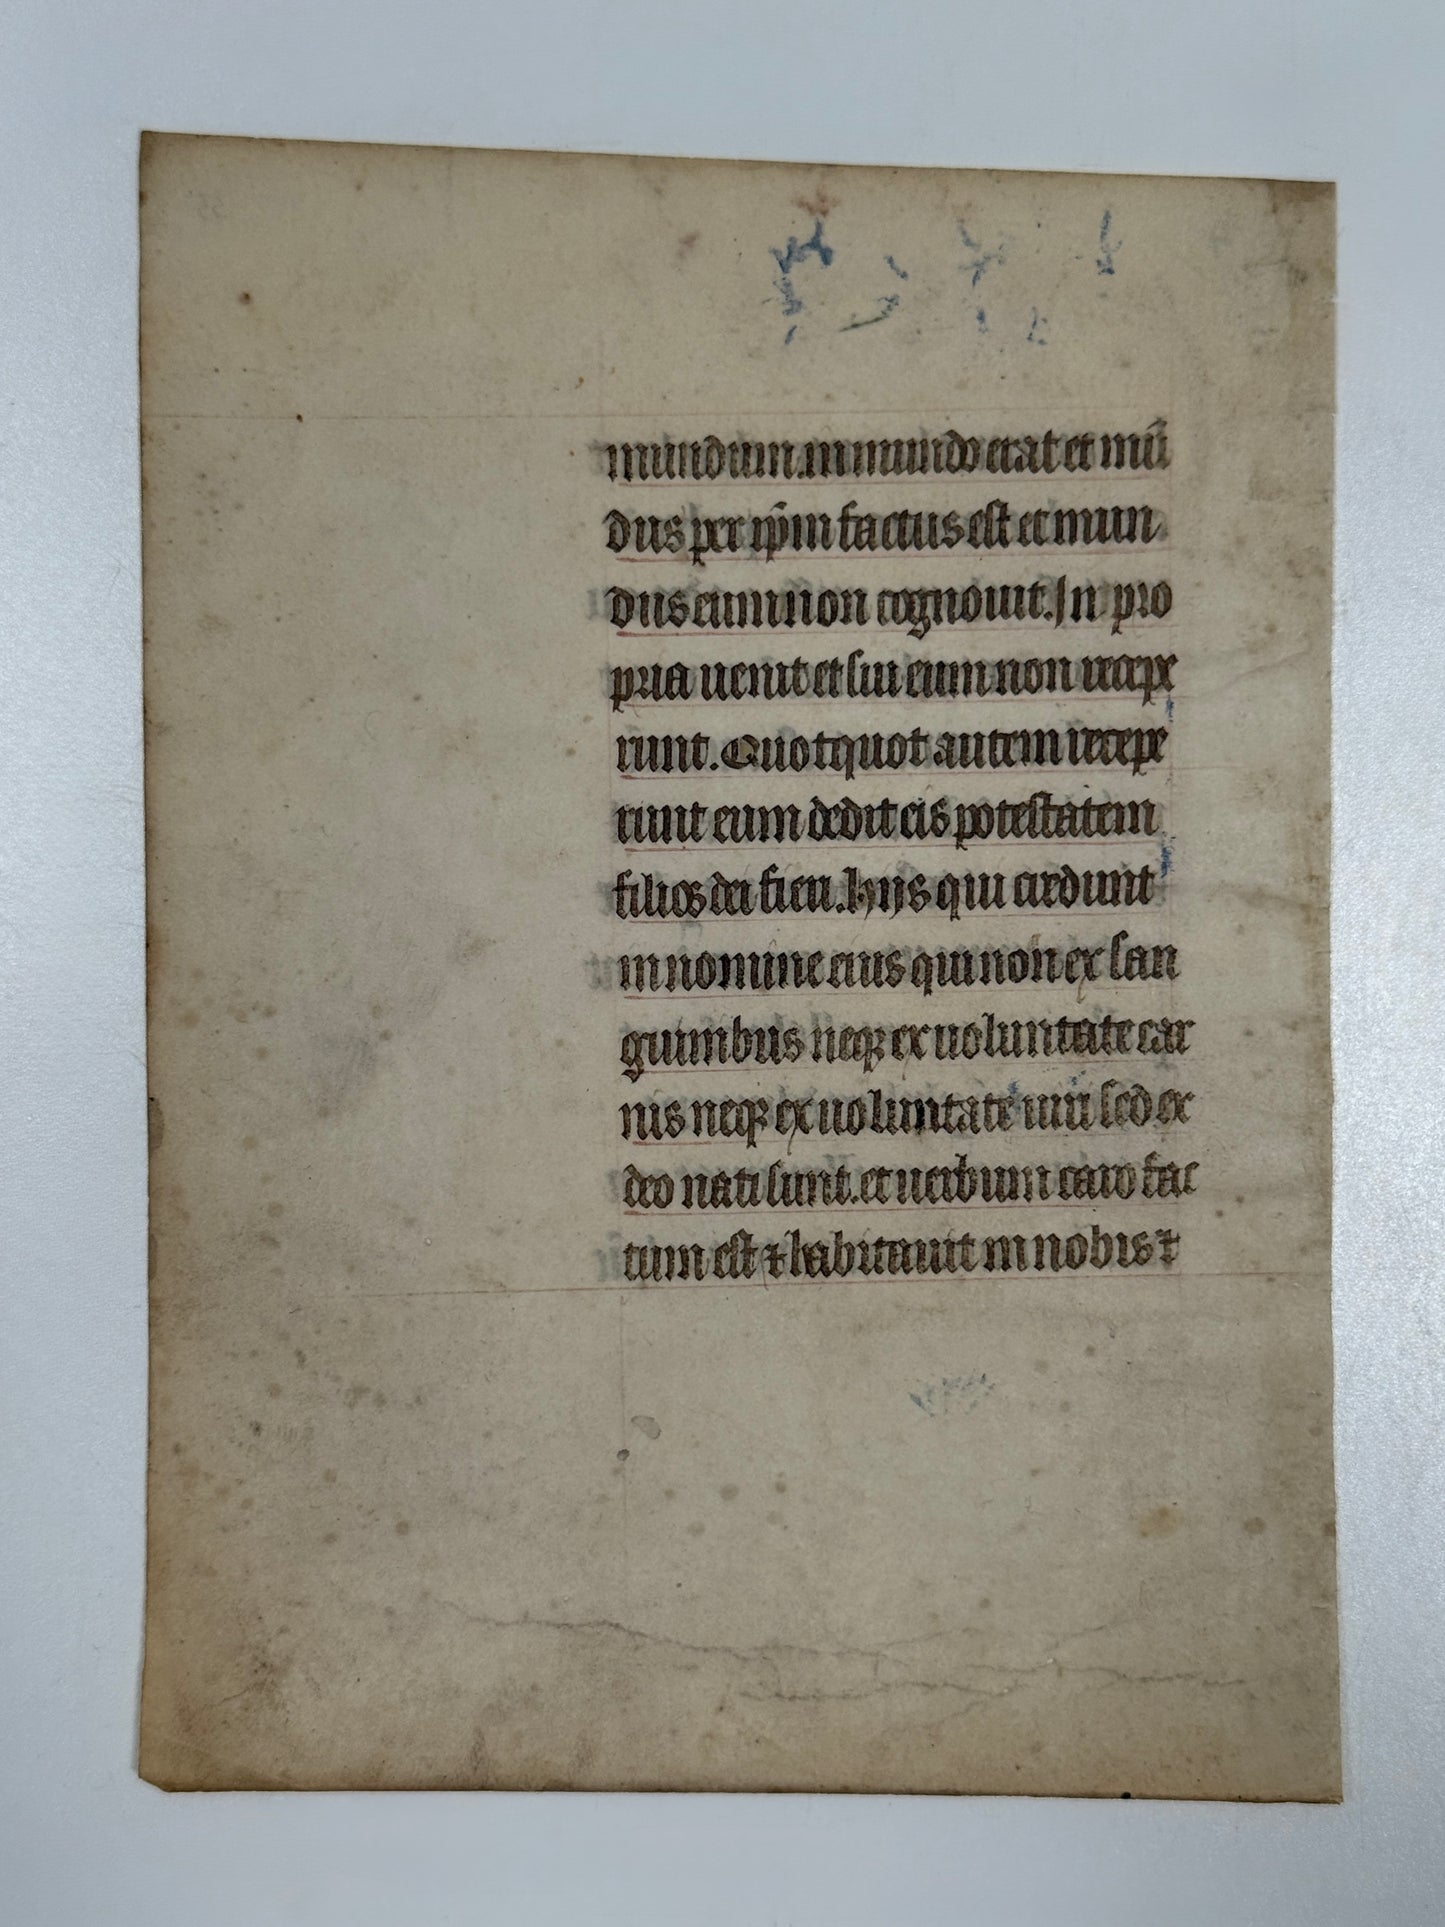 mundum.in mundo erat et mū
dus per ip̄m factus est et mun
dus eum non cognouit.In pro
pria uenit et sui eum non recepe
runt.Quotquot autem recepe
runt eum dedit eis potestatem
filios dei fieri.hijs qui credunt
in nomine eius qui non ex san
guinibus neqꝫ ex uoluntate car
nis neqꝫ ex uoluntate uiri sed ex
deo nati sunt.et uerbum caro fac
tum est ⁊ habitauit in nobis ⁊